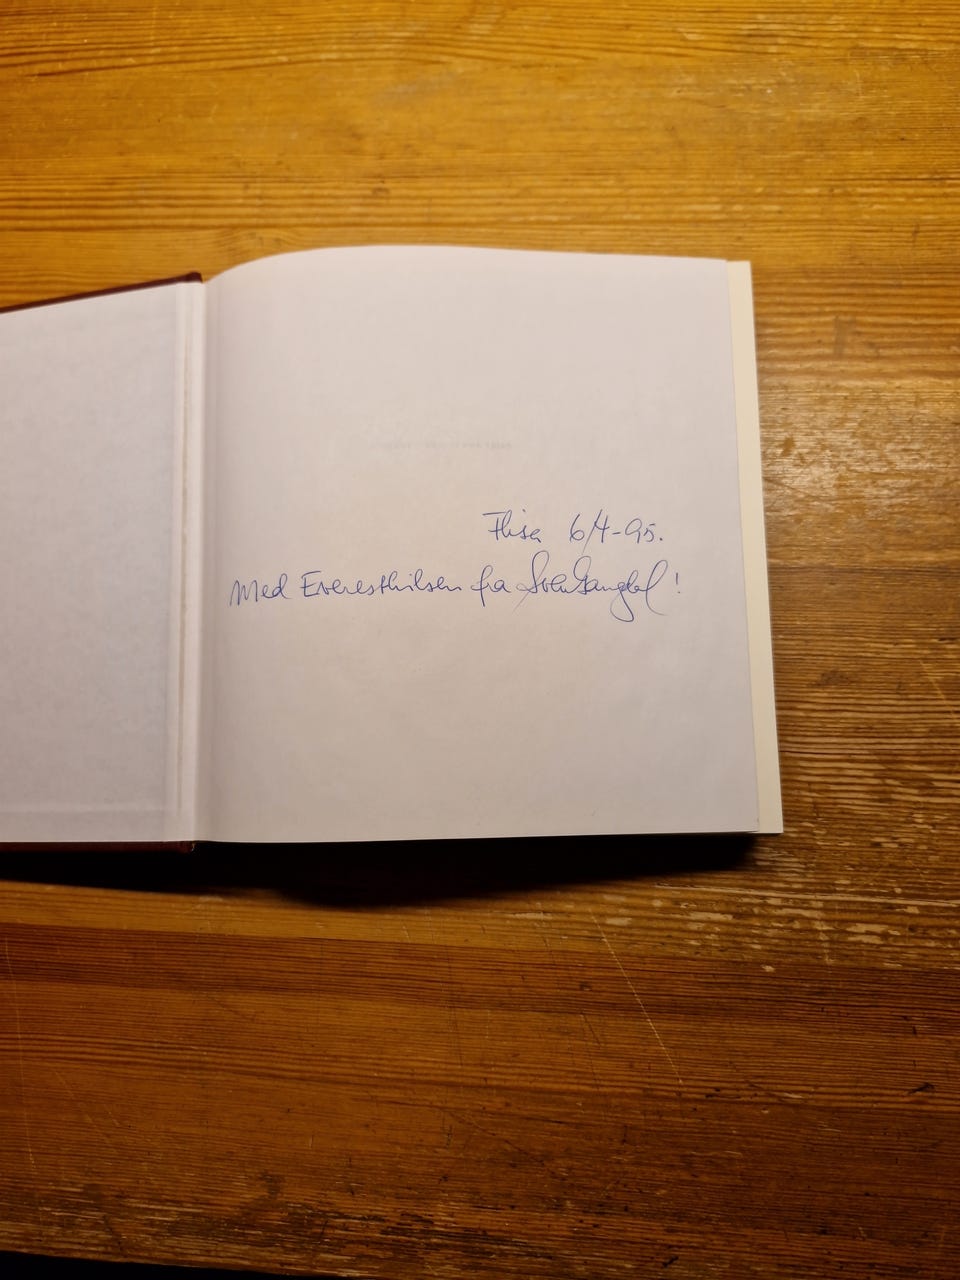 Flisa 6/4-95.
Med Everesthilsen fra Sven Gangdal!